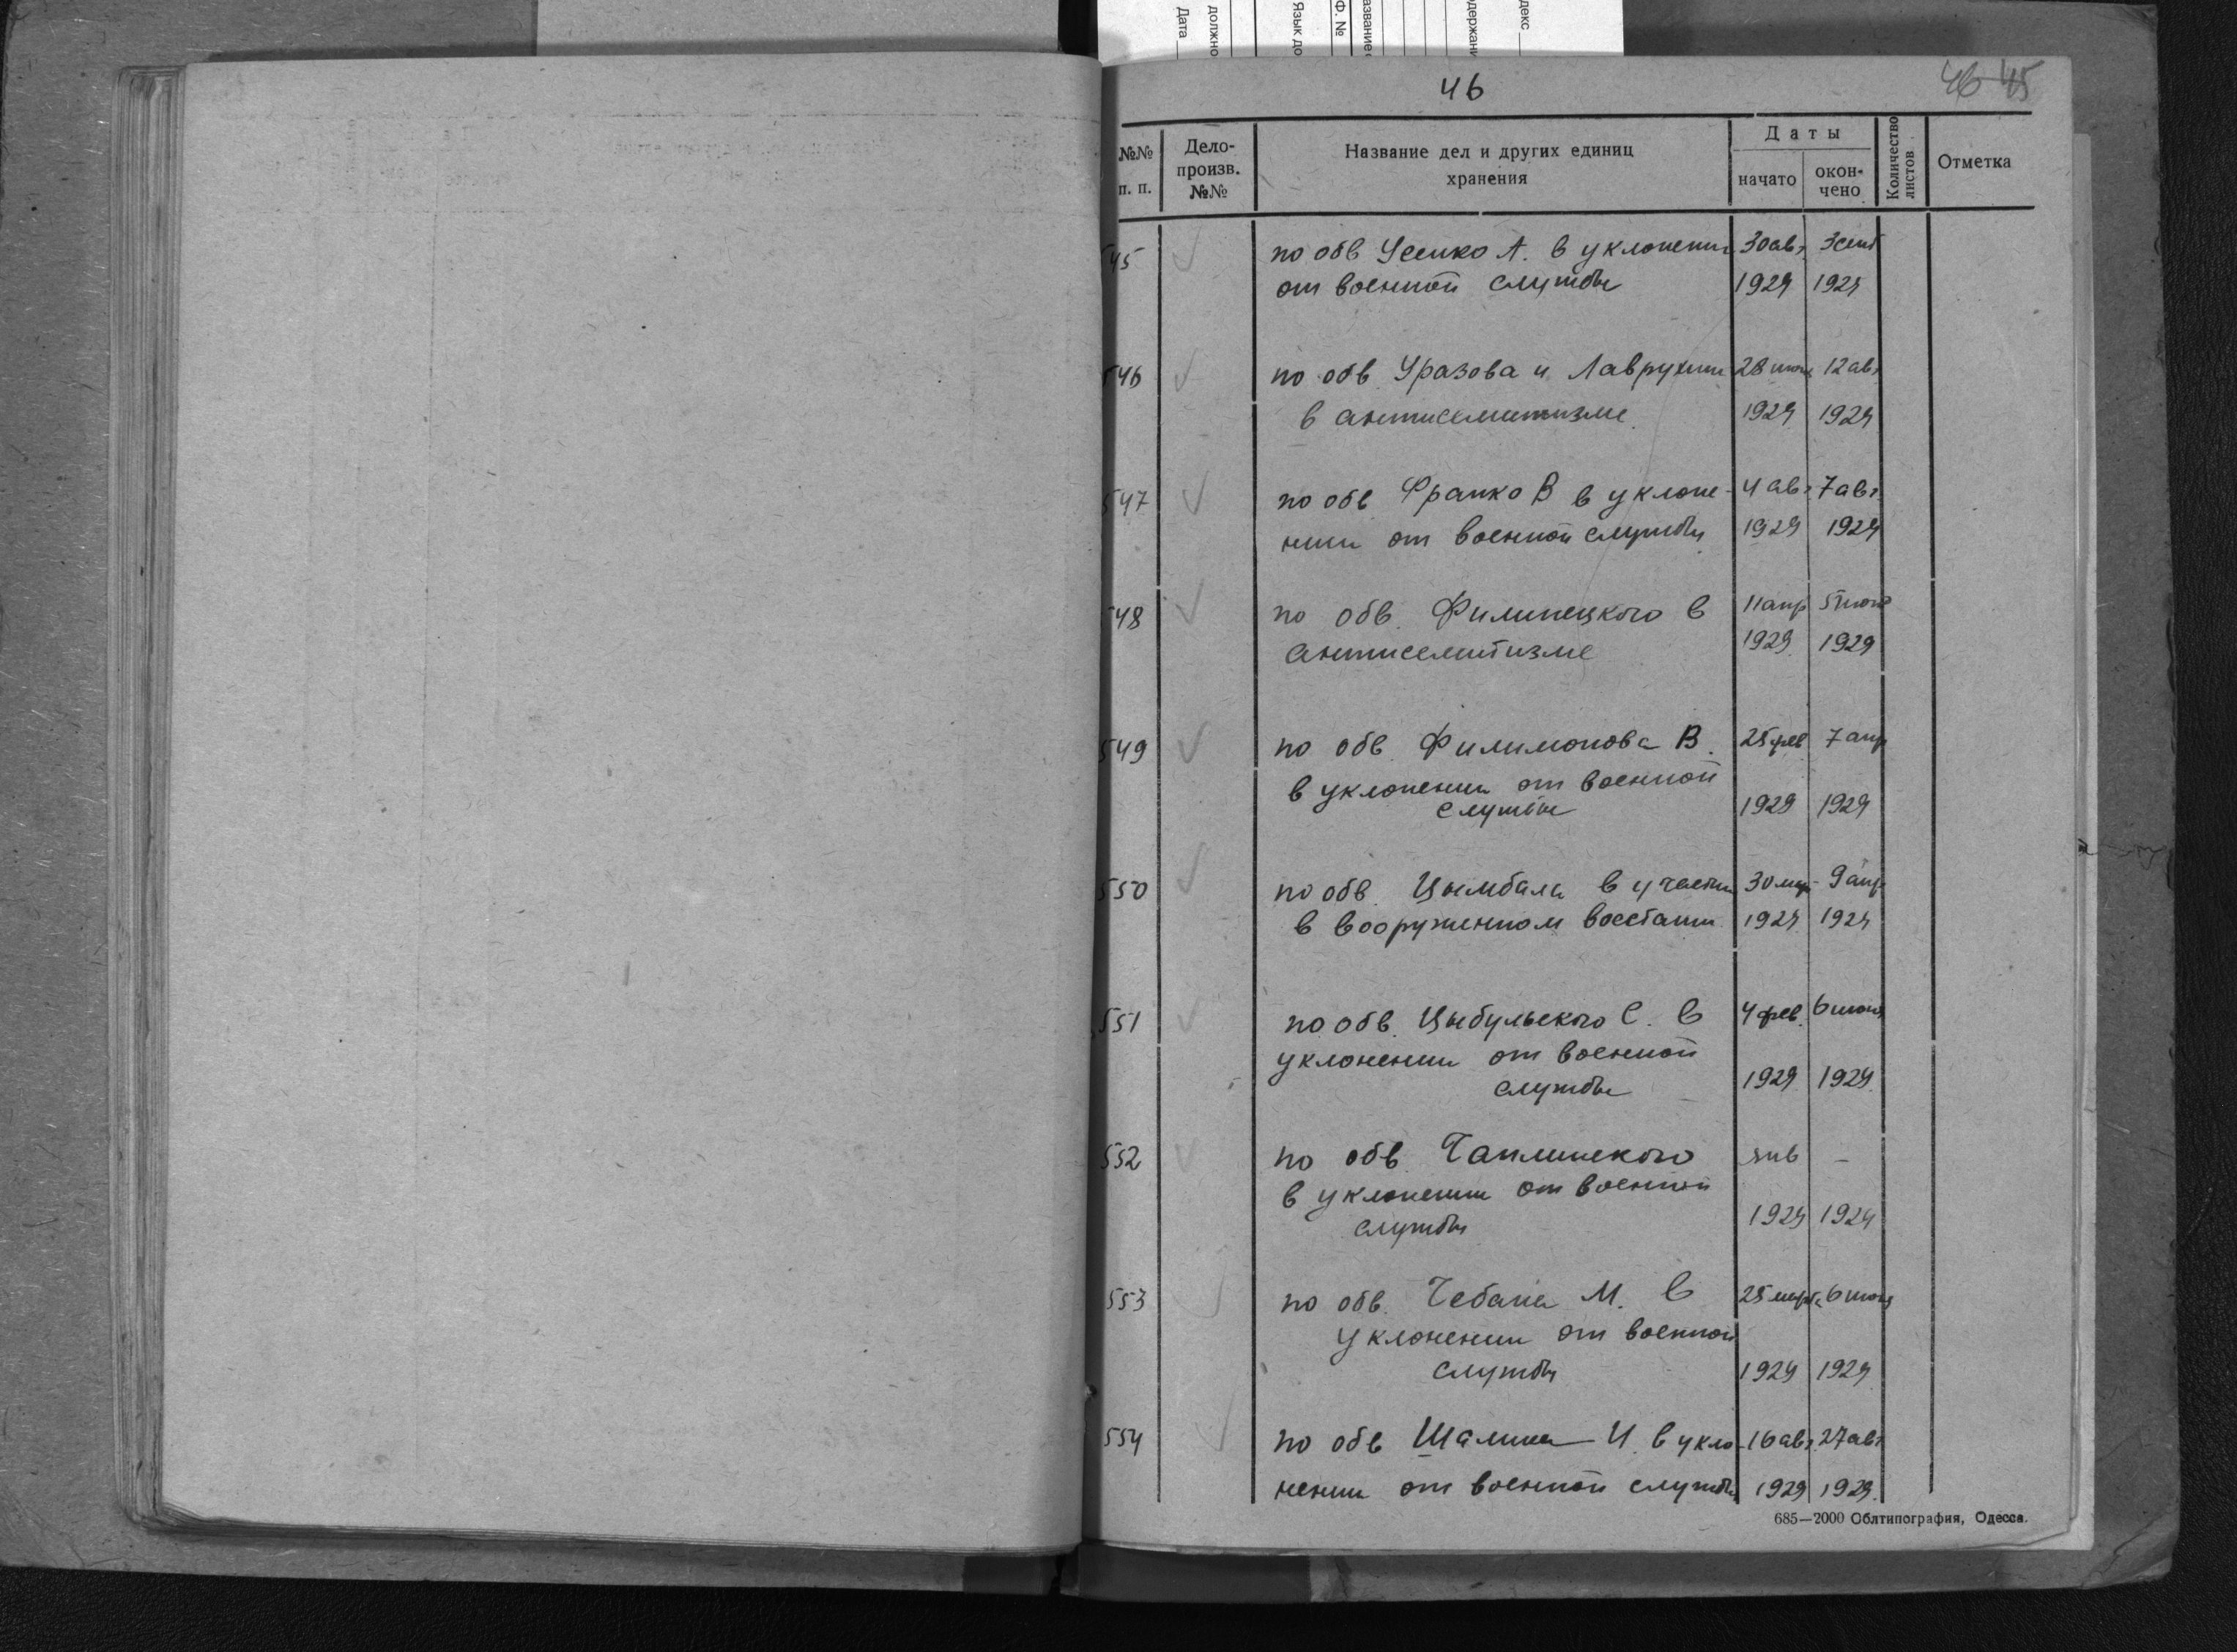 Дата
должно
Язык до
Ф. №
азвание
держани
декс
46
46 45
№№ п. п.
Дело-произв. №№
Название дел и других единиц хранения
Даты
начато
окон-чено
Количество листов
Отметка
545 по обв Усенко А. в уклонении 30 авг 3 сент
от военной службы 1929 1929
546 по обв. Уразова и Лаврухина 28 июня 12 авг
в антисемитизме 1929 1929
547 по обв Франко В в уклоне- 4 авг. 7 авг.
нии от военной службы 1929 1929
548 по обв. Филипецкого в 11 апр 5 июня
антисемитизме 1929 1929
549 по обв. Филимонова В. 25 фев 7 апр
в уклонении от военной
службы 1929 1929
550 по обв. Цымбала в участии 30 мар 9 апр
в вооруженном восстании 1929 1929
551 по обв. Цыбульского С. в 4 фев. 6 июня
уклонении от военной
службы 1929 1929
552 по обв. Чаплинского янв —
в уклонении от военной
службы 1929 1929
553 по обв. Чебана М. в 25 марта 6 июня
уклонении от военной
службы 1929 1929
554 по обв Шалина И. в укло- 16 авг 27 авг
нении от военной службы 1929 1929
685—2000 Облтипография, Одесса.